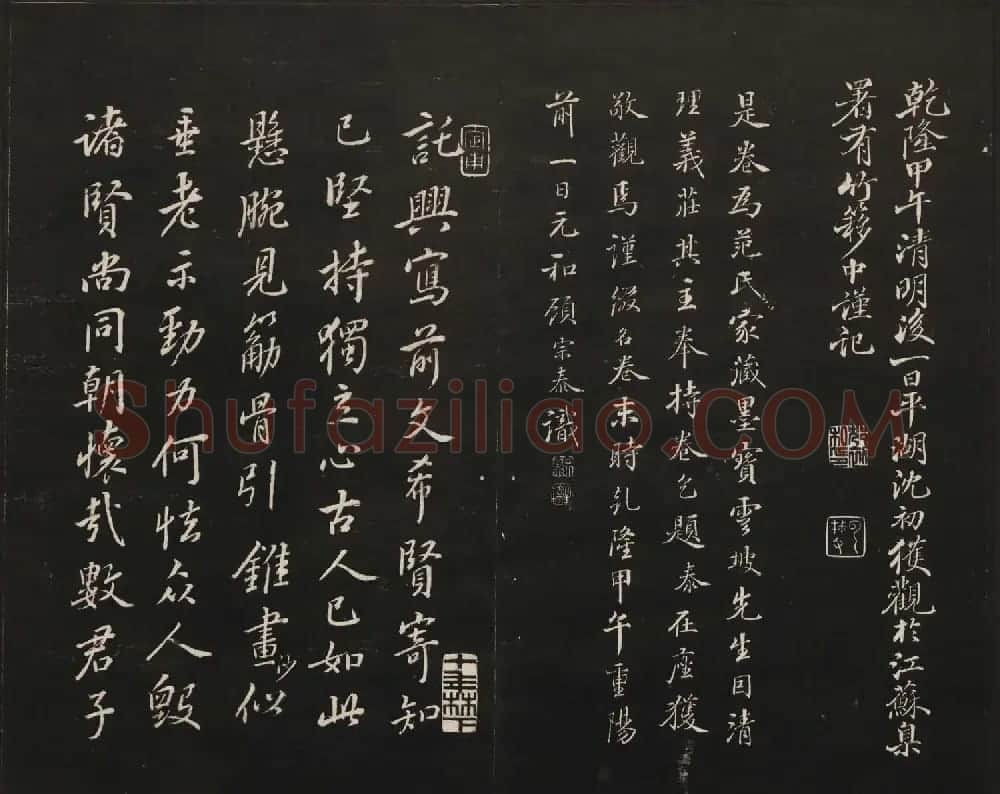 乾隆甲午清明後一日平湖沈初獲觀於江蘇臬
署有竹簃中謹記
是卷為范氏家藏墨寶雲坡先生因清
理義莊其主奉持卷乞題泰在座獲
敬觀焉謹綴名卷末時乾隆甲午重陽
前一日元和顧宗泰識
託興寫前文希賢寄知
己堅持獨立心古人已如此
懸腕見筋骨引錐畫沙似
垂老示勁力何怯众人毀
諸賢尚同朝懷哉數君子
Shufaziliao.COM